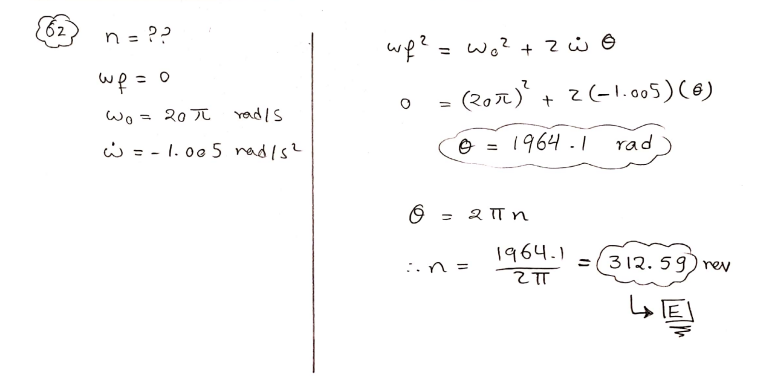 62
n = ??
ωf = 0
ω₀ = 20π rad/s
ω̇ = -1.005 rad/s²
ωf² = ω₀² + 2 ω̇ θ
0 = (20π)² + 2(-1.005)(θ)
θ = 1964.1 rad
θ = 2πn
∴ n = 1964.1 / 2π = 312.59 rev
↳ E